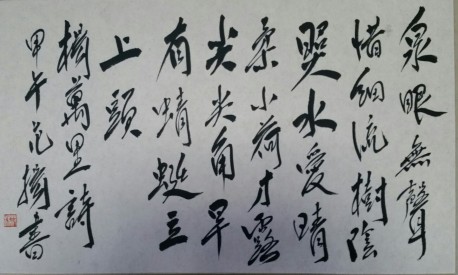 泉眼無聲
惜細流樹陰
照水愛晴
柔小荷才露
尖尖角早
有蜻蜓立
上頭
楊萬里詩
甲午范書